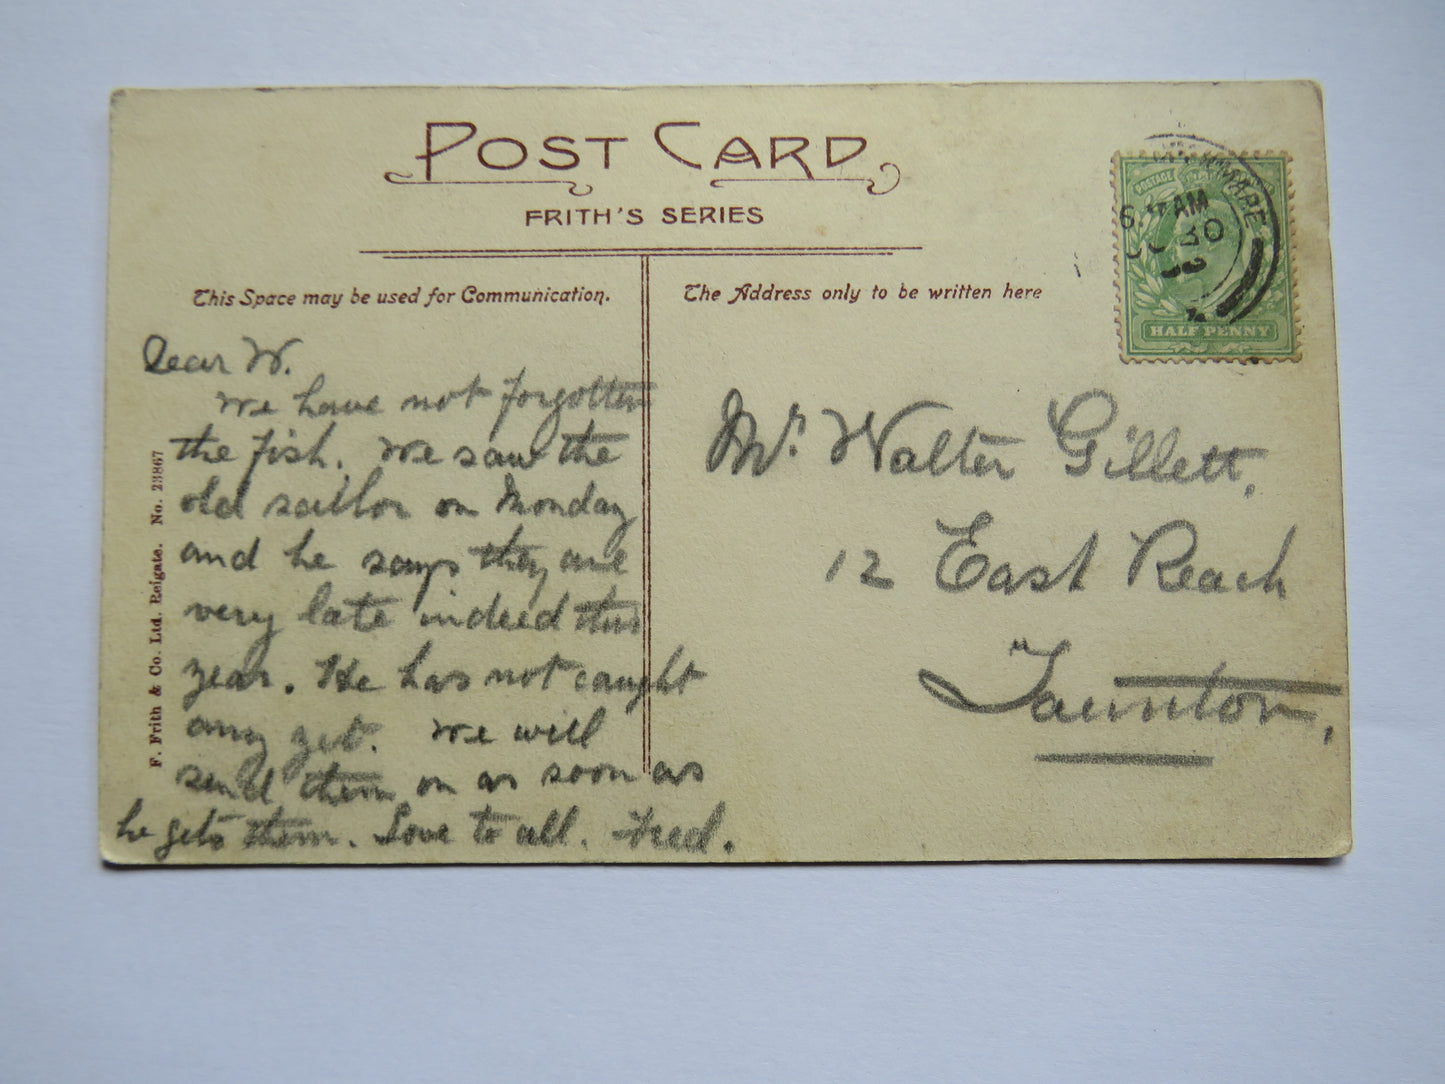 POST CARD
FRITH'S SERIES
This Space may be used for Communication.
The Address only to be written here
POSTAGE
HALF PENNY
AM
30
Dear W.
We have not forgotten
the fish. We saw the
old sailor on Monday
and he says they are
very late indeed this
year. He has not caught
any yet. We will
send them on as soon as
he gets them. Love to all. Fred.
Mr. Walter Gillett,
12 East Reach
Taunton,
F. Frith & Co. Ltd. Reigate. No. 23867